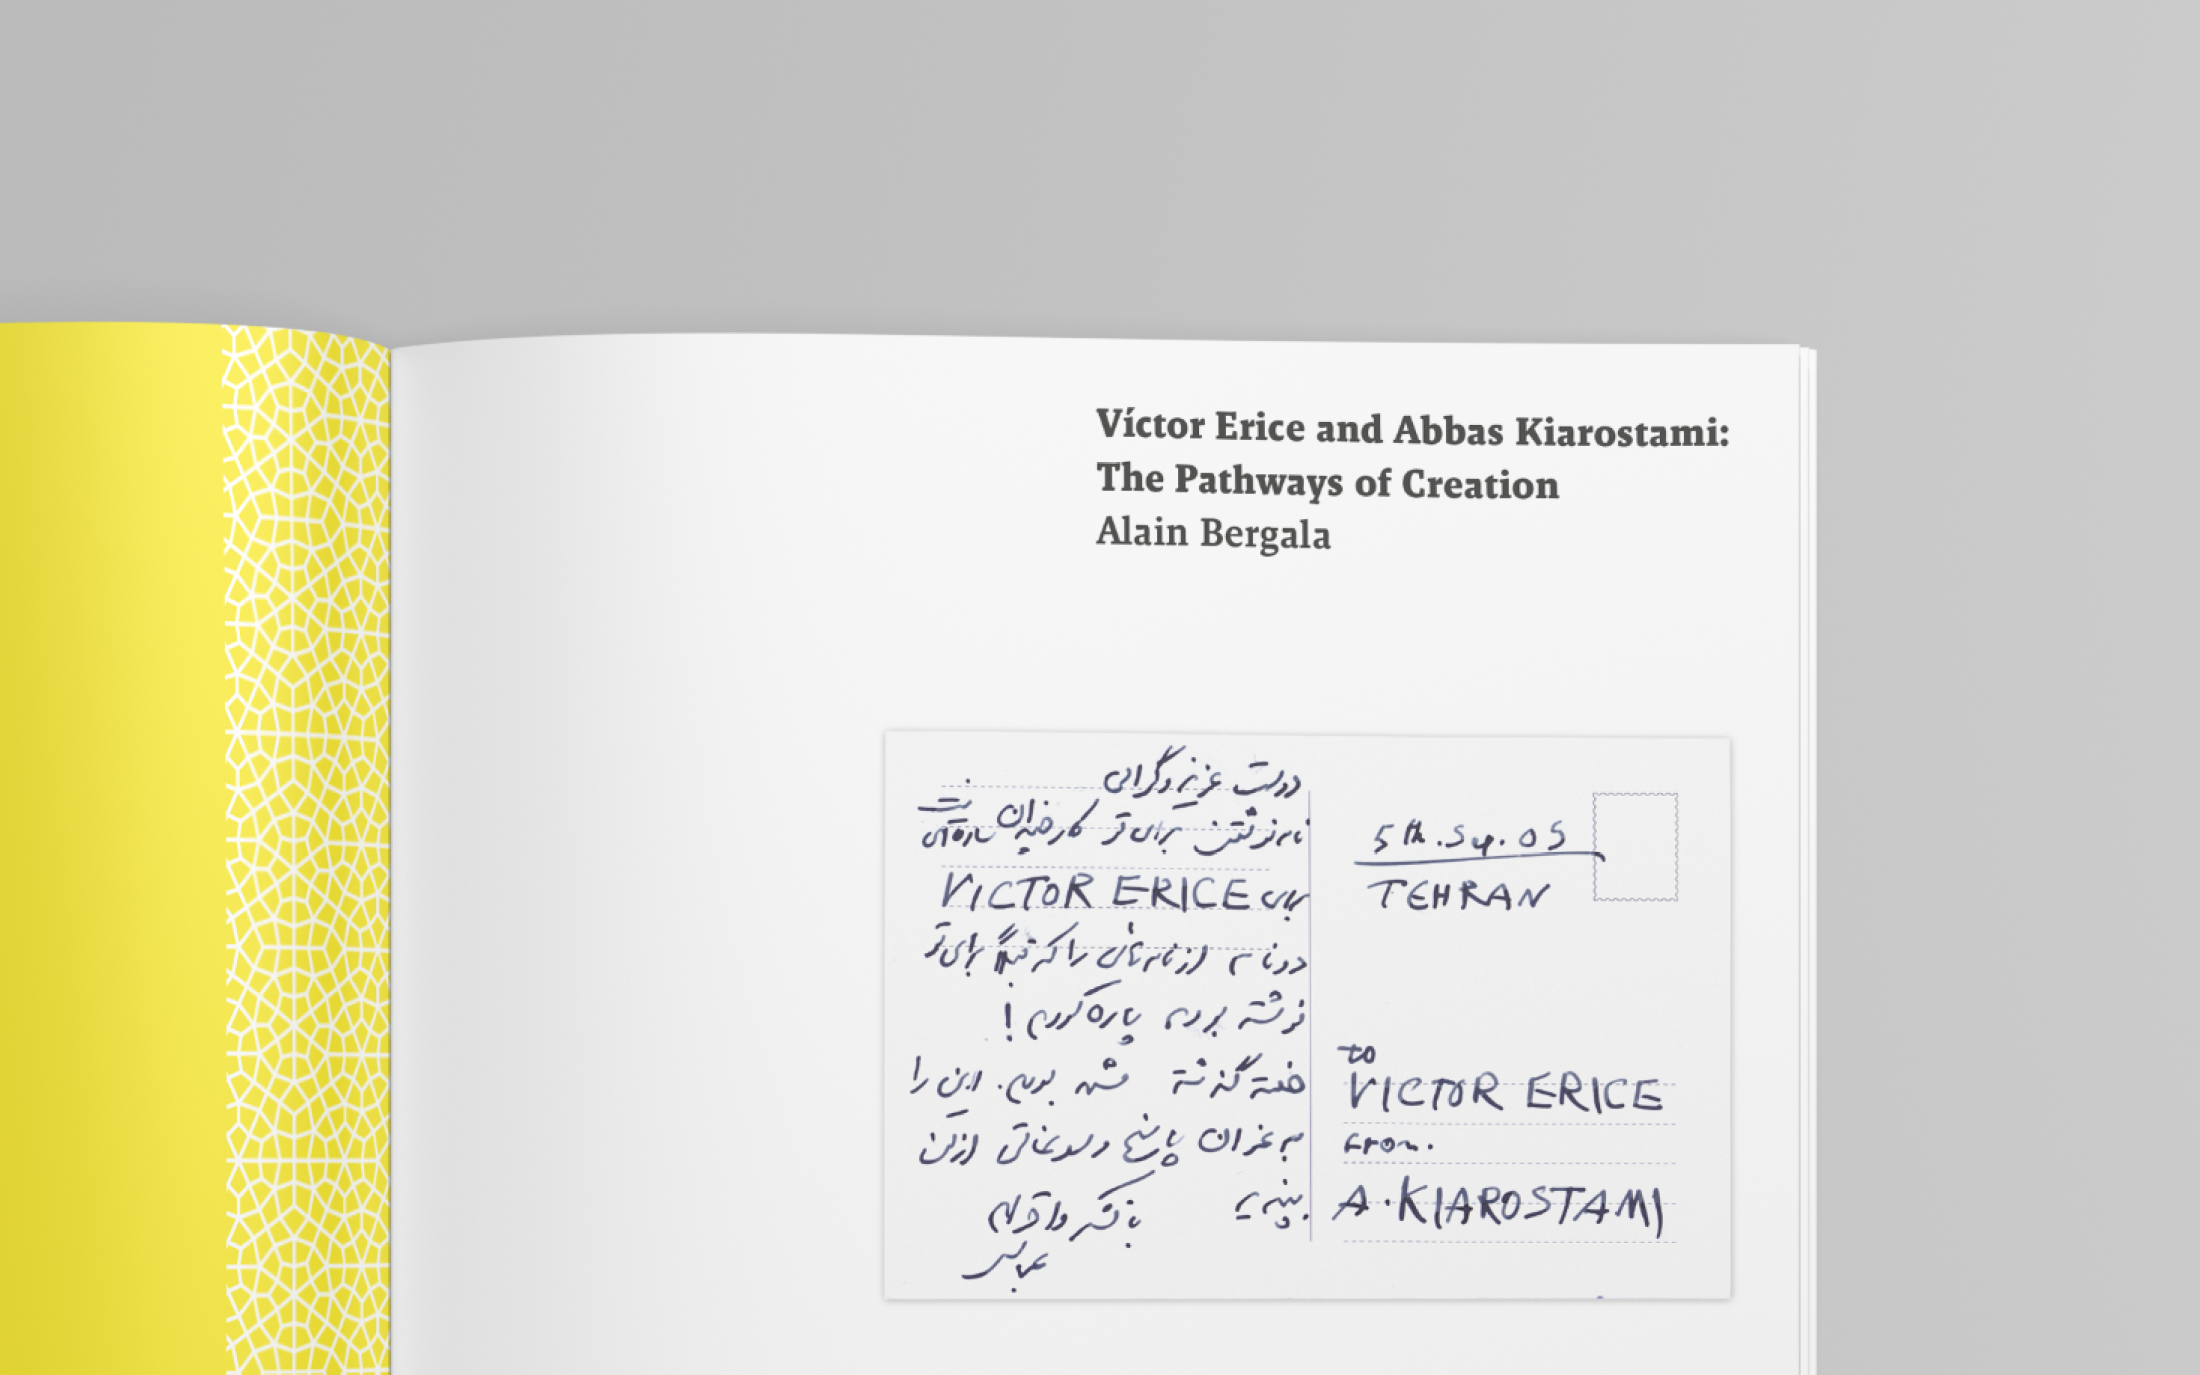 Víctor Erice and Abbas Kiarostami:
The Pathways of Creation
Alain Bergala
دوست عزیز و گرامی
نامه نوشتن برای تو کار چندان ساده‌ای نیست
برای VICTOR ERICE
دو نامه از نامه‌هایی را که قبلاً برای تو
نوشته بودم پاره کردم!
هفته گذشته بودم. این را
به عنوان پاسخ و سوغاتی از من
بپذیر
با تشکر و احترام
عباس
5th.Sep.05
TEHRAN
to
VICTOR ERICE
from.
A.KIAROSTAMI